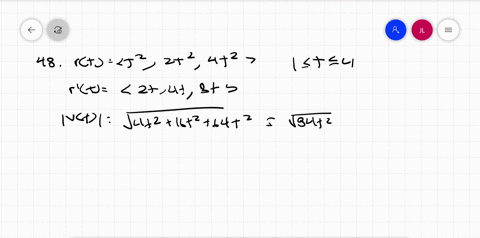 48. r(t) = <t², 2t², 4t²> 1 ≤ t ≤ 4
r'(t) = <2t, 4t, 8t>
|v(t)| = √4t² + 16t² + 64t² = √84t²